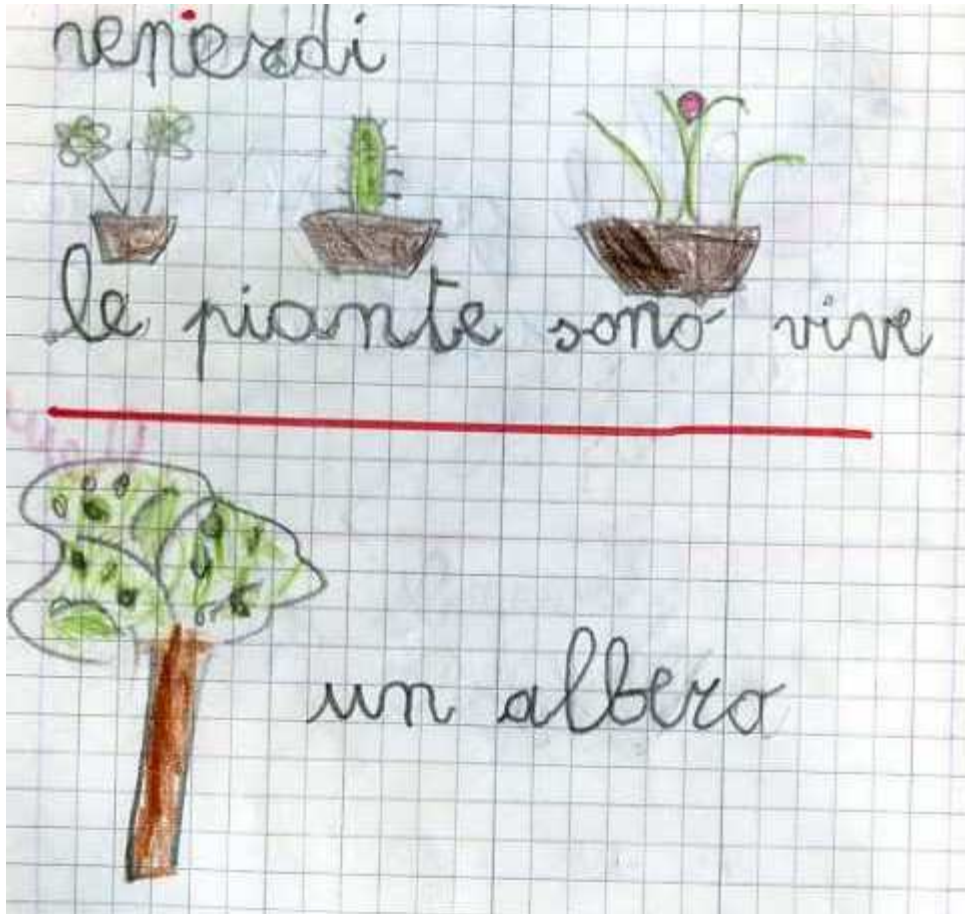 venerdi
le piante sono vive
un albero